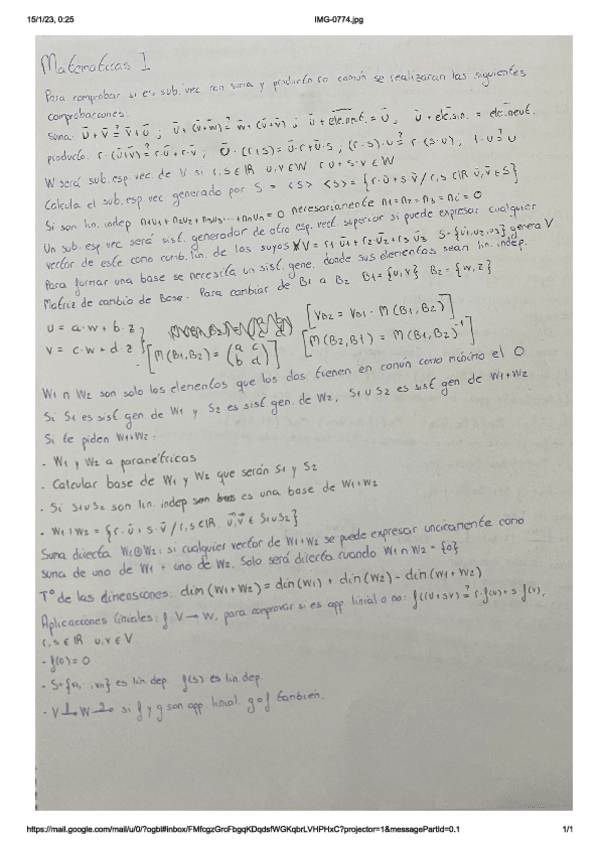 15/1/23, 0:25
IMG-0774.jpg
Matematicas 1
Para comprobar si es sub. vec con suma y producto no común se realizaran las siguientes
comprobaciones:
Suma: ū + v̄ ≟ v̄ + ū ; ū + (v̄+w̄) ≟ w̄ + (ū+v̄) ; ū + ele.neut. = ū , ū + ele.sim. = ele.neut.
producto: r·(ū+v̄) ≟ r·ū + r·v̄ ; ū·(r+s) = ū·r + ū·s , (r·s)·u ≟ r(s·u), 1·u ≟ u
W será sub.esp.vec de V si r,s ∈ ℝ u,v ∈ W r·u + s·v ∈ W
Calcula el sub.esp.vec generado por S = <S> <S> = {r·ū + s v̄ / r,s ∈ ℝ ū,v̄ ∈ S}
Si son lin. indep n1u1 + n2u2 + n3u3 ... + nnun = 0 necesariamente n1 = n2 = n3 = ni = 0
Un sub. esp vec. será sist. generador de otro esp. vect. superior si puede expresar cualquier
vector de este como comb. lin. de los suyos V = r1 ū1 + r2 ū2 + r3 ū3 S = {u1, u2, u3} genera V
Para formar una base se necesita un sist. gene. donde sus elementos sean lin. indep.
Matriz de cambio de Base. Para cambiar de B1 a B2 B1 = {u,v} B2 = {w,z}
u = a·w + b·z
v = c·w + d·z
[M(B1,B2) = (a c
b d)]
[VB2 = VB1 · M(B1,B2)]
[M(B2,B1) = M(B1,B2)⁻¹]
W1 ∩ W2 son solo los elementos que los dos tienen en común como mínimo el 0
Si S1 es sist. gen de W1 y S2 es sist. gen. de W2, S1 ∪ S2 es sist gen de W1+W2
Si te piden W1+W2:
- W1 y W2 a paramétricas
- Calcular base de W1 y W2 que serán S1 y S2
- Si S1∪S2 son lin. indep es una base de W1+W2
- W1+W2 = {r·ū + s·v̄ / r,s ∈ ℝ, ū,v̄ ∈ S1∪S2}
Suma directa W1⊕W2: si cualquier vector de W1+W2 se puede expresar unicamente como
suma de uno de W1 + uno de W2. Solo será directa cuando W1 ∩ W2 = {0}
Tº de las dimensiones: dim (W1+W2) = dim(W1) + dim(W2) - dim(W1+W2)
Aplicaciones liniales: f: V → W, para comprovar si es app. linial o no: f(ru+sv) ≟ r·f(u) + s·f(v),
r,s ∈ ℝ u,v ∈ V
- f(0) = 0
- S = {v1, ..., vn} es lin. dep f(S) es lin. dep.
- V → W → si f y g son app. linial. g o f tambien.
https://mail.google.com/mail/u/0/?ogbl#inbox/FMfcgzGrcFbgqKDqdsfWGKqbrLVHPHxC?projector=1&messagePartId=0.1
1/1